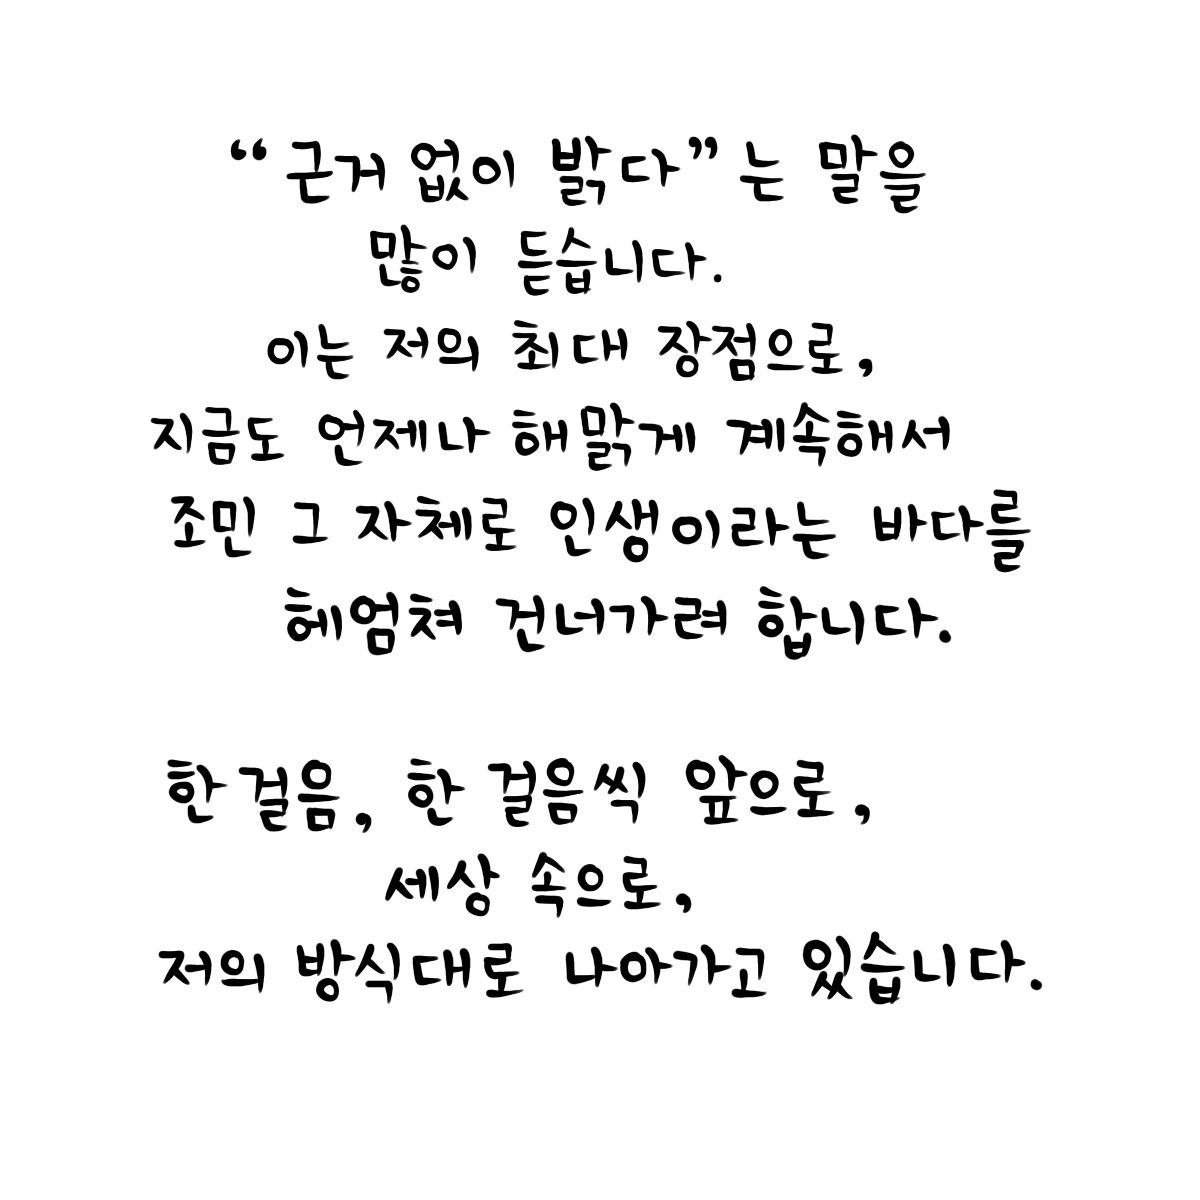 “근거 없이 밝다”는 말을
많이 듣습니다.
이는 저의 최대 장점으로,
지금도 언제나 해맑게 계속해서
조민 그 자체로 인생이라는 바다를
헤엄쳐 건너가려 합니다.
한 걸음, 한 걸음씩 앞으로,
세상 속으로,
저의 방식대로 나아가고 있습니다.